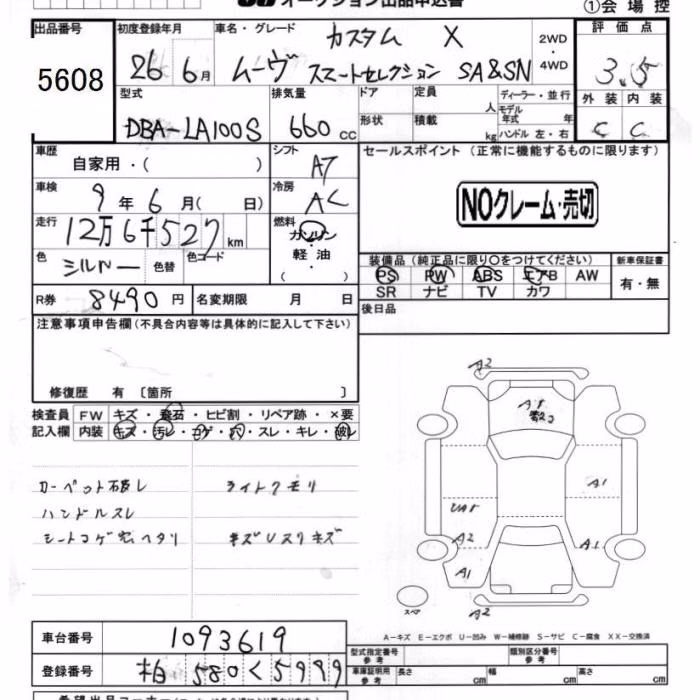 オークション出品申込書
①会場控
出品番号
5608
初度登録年月
26年 6月
車名・グレード
カスタム X
ムーヴ スマートセレクション SA&SN
2WD・4WD
評価点
3.5
外装 内装
C C
型式
DBA-LA100S
排気量
660 cc
ドア
形状
定員 人
積載 kg
ディーラー・並行
モデル年式 年
ハンドル 左・右
車歴
自家用・( )
シフト
AT
セールスポイント (正常に機能するものに限ります)
NOクレーム・売切
車検
9年 6月( 日)
冷房
AC
走行
12万6千527km
燃料
ガソリン
軽油
( )
色
シルバー
色替
色コード
装備品 (純正品に限り○をつけてください)
PS PW ABS エアB AW
SR ナビ TV カワ
新車保証書
有・無
R券 8490円
名変期限 月 日
後日品
注意事項申告欄(不具合内容等は具体的に記入して下さい)
修復歴 有 〔箇所 〕
検査員記入欄
FW キズ・飛石・ヒビ割・リペア跡・×要
内装 キズ・汚レ・コゲ・穴・スレ・キレ・破レ
カーペット破レ ライトクモリ
ハンドルスレ
シートコゲ穴ヘタリ キズUスリキズ
A2
A1
A1
A2
A1
A1
A2
スペア
A-キズ E-エクボ U-凹み W-補修跡 S-サビ C-腐食 XX-交換済
車台番号 1093619
型式指定番号 参考
類別区分番号 参考
登録番号 柏 580 く 5999
車庫証明用 参考 長さ cm 幅 cm 高さ cm